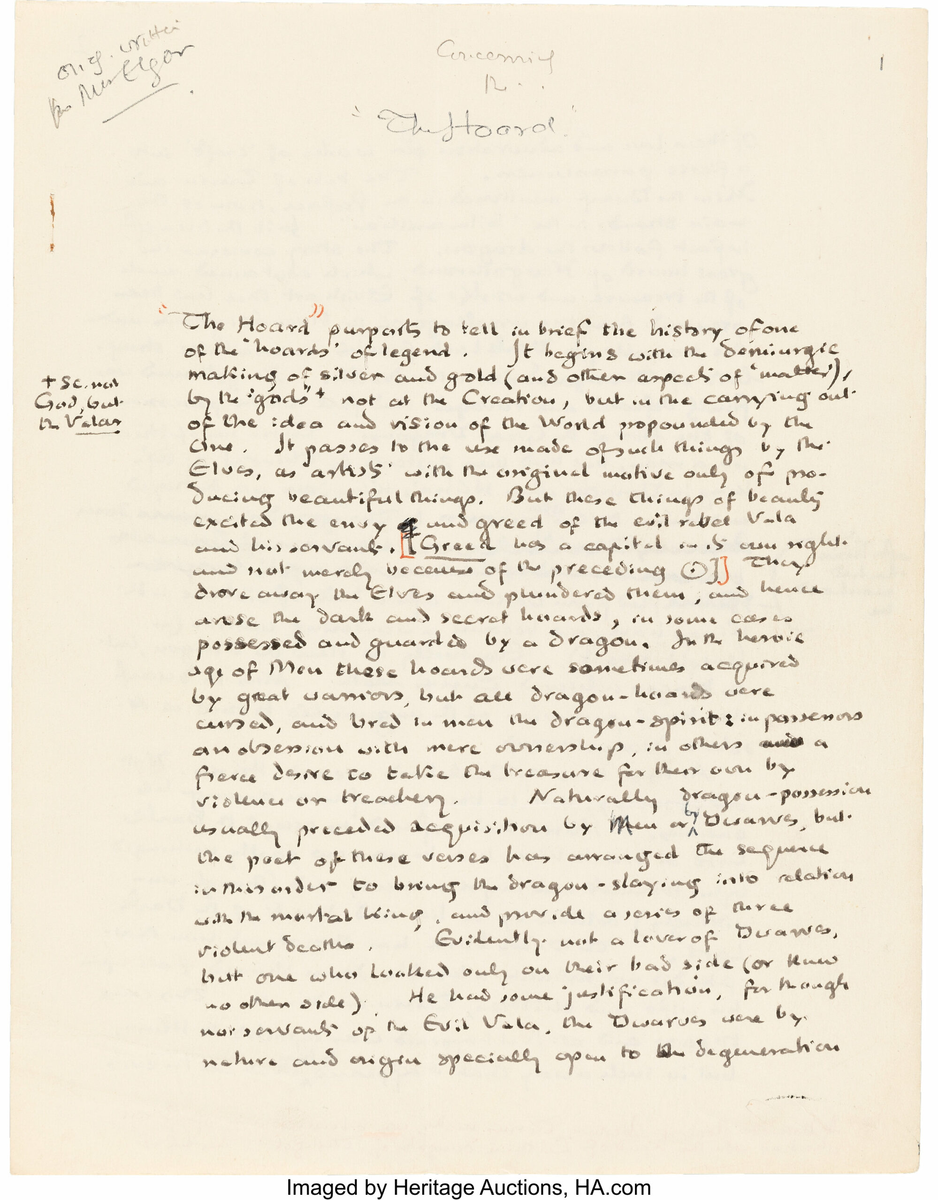 orig. written
for Mrs Elgar
Concerning
"The Hoard"
1
"The Hoard" purports to tell in brief the history of one
of the "hoards" of legend. It begins with the demiurgic
making of silver and gold (and other aspects of "matter"),
by the "gods"+ not at the Creation, but in the carrying out
of the idea and vision of the World propounded by the
One. It passes to the use made of such things by the
Elves, as "artists" with the original motive only of pro-
ducing beautiful things. But these things of beauty
excited the envy and greed of the evil rebel Vala
and his servants. [Greed has a capital in its own right
and not merely because of the preceding ⊙]] They
drove away the Elves and plundered them, and hence
arose the dark and secret hoards, in some cases
possessed and guarded by a dragon. In the heroic
age of Men these hoards were sometimes acquired
by great warriors, but all dragon-hoards were
cursed, and bred in men the dragon-spirit: in possessors
an obsession with mere ownership, in others a
fierce desire to take the treasure for their own by
violence or treachery. Naturally dragon-possession
usually preceded acquisition by Men or by Dwarves, but
the poet of these verses has arranged the sequence
in this order to bring the dragon-slaying into relation
with the mortal king, and provide a series of three
violent deaths. Evidently not a lover of Dwarves,
but one who looked only on their bad side (or knew
no other side). He had some justification, for though
not servants of the Evil Vala, the Dwarves were by
nature and origin specially open to the degeneration
+ sc. not
God, but
the Valar
Imaged by Heritage Auctions, HA.com